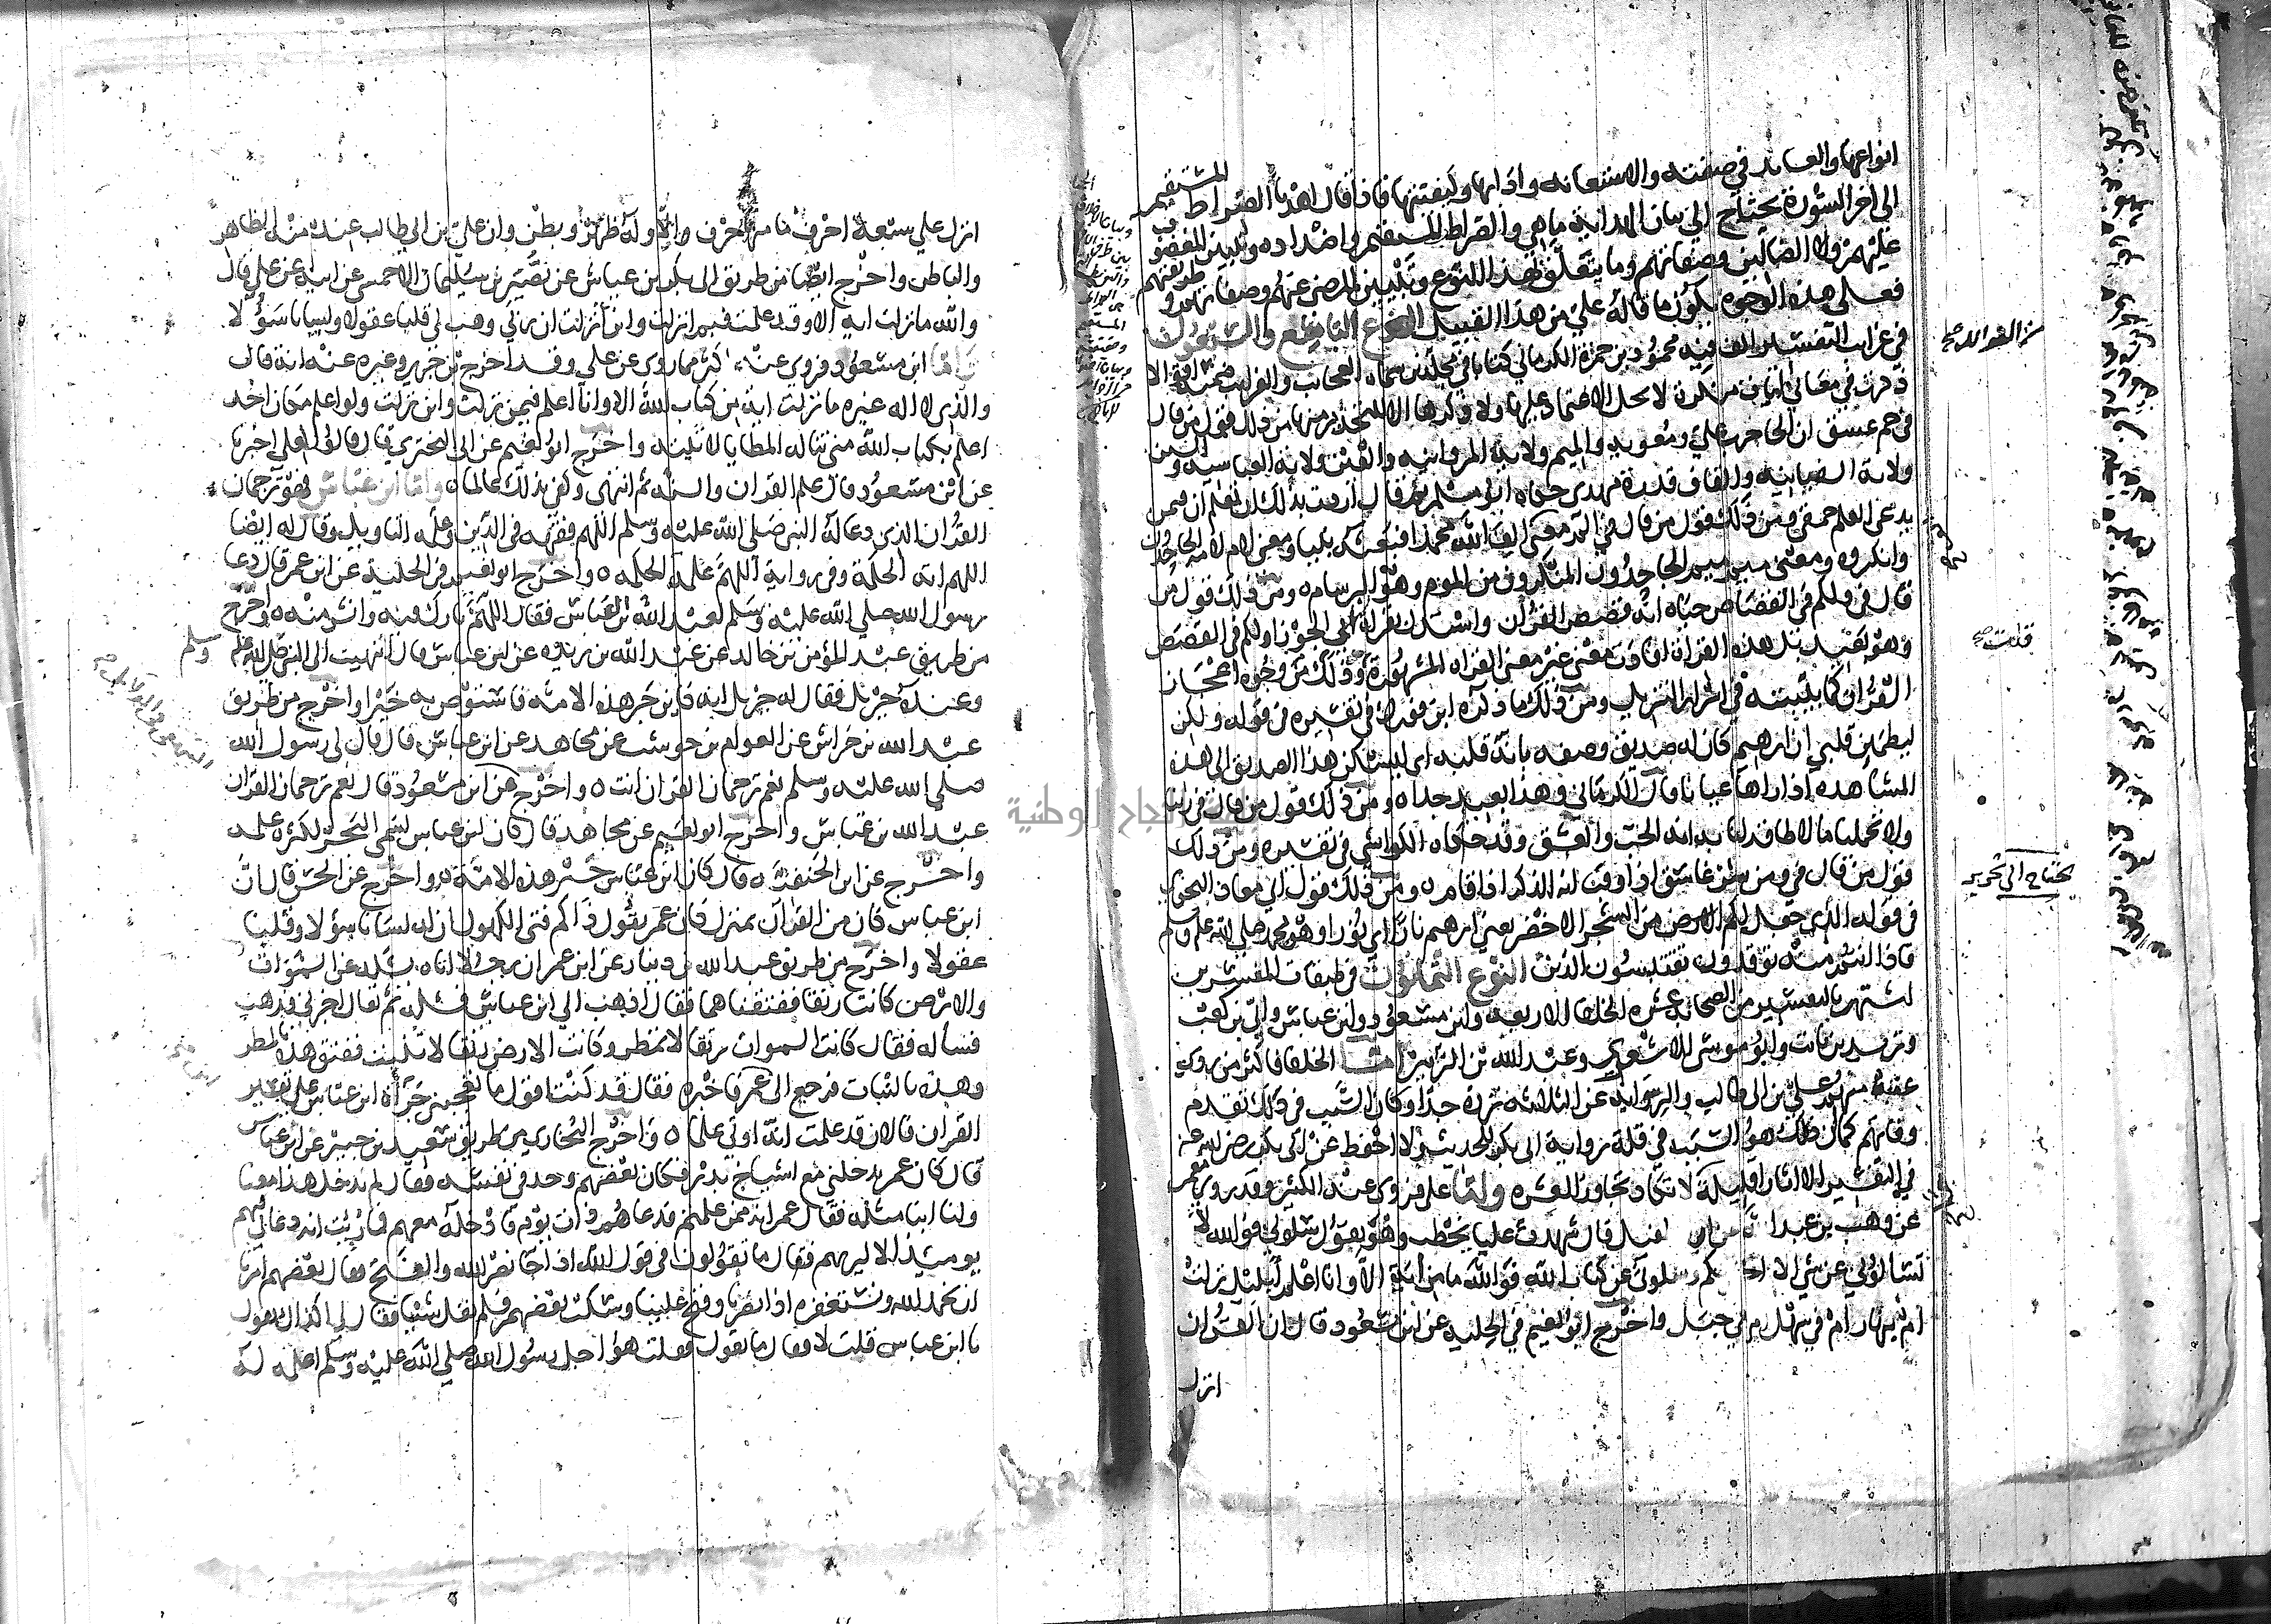 انواعها والعابد في صفته والاستعانة وادابها وكيفيتها فاذا قال اهدنا الصراط المستقيم
الى اخر السورة يحتاج الى بيان الهداية ما هي والصراط المستقيم واضداده وتبيين المغضوب
عليهم ولا الضالين وصفاتهم وما يتعلق بهذا النوع وتبيين المرضي عنهم وصفاتهم وطريقتهم
فعلى هذه الوجوه يكون ما قاله علي من هذا القبيل النوع التاسع والسبعون
في غرائب التفسير الف فيه محمود بن حمزة الكرماني كتابا في مجلدين سماه العجائب والغرائب ضمنه اقوالا
ذكرت في معاني ايات منكرة لا يحل الاعتماد عليها ولا ذكرها الا للتحذير منها من ذلك قول من قال
في حم عسق ان الحا حرب علي ومعوية والميم ولاية المروانية والعين ولاية العباسية والسين
ولاية السفيانية والقاف قدوة مهدي حكاه ابو مسلم ثم قال اردت بذلك ان تعلم ان فيمن
يدعي العلم حمقى ومن ذلك قول من قال في الم معنى الف الف الله محمدا فبعثه نبيا ومعنى لام لامه الجاحدون
وانكروه ومعنى ميم ميم الجاحدون المنكرون من الموم وهو البرسام ومن ذلك قول من
قال في ولكم في القصاص حياه انه قصص القران واستدل بقراة ابي الجوزا ولكم في القصص
وهو بعيد بل هذه القراة افادت معنى غير معنى القراه المشهورة وذلك من وجوه اعجاز
القران كما بينته في اسرار التنزيل ومن ذلك ما ذكره ابن فورك في تفسيره في قوله ولكن
ليطمئن قلبي ان ابرهيم كان له صديق وصفه بانه قلبه اي ليسكن هذا الصديق الى هذه
المشاهده اذا راها عيانا قال الكرماني وهذا بعيد جدا ومن ذلك قول من قال في ربنا
ولا تحملنا ما لا طاقة لنا به انه الحب والعشق وقد حكاه الكواشي في تفسيره ومن ذلك
قول من قال في ومن شر غاسق اذا وقب انه الذكر اذا قام ومن ذلك قول ابي معاذ النحوي
في قوله الذي جعل لكم من الشجر الاخضر يعني ابرهيم نارا اي نورا وهو محمد صلى الله عليه وسلم
فاذا انتم منه توقدون تقتبسون الدين النوع الثمانون في طبقات المفسرين
اشتهر بالتفسير من الصحابة عشره الخلفا الاربعة وابن مسعود وابن عباس وابي بن كعب
وزيد بن ثابت وابو موسى الاشعري وعبد الله بن الزبير اما الخلفا فاكثر من روي
عنه منهم علي بن ابي طالب والرواية عن الثلاثة نزرة جدا وكان السبب في ذلك تقدم
وفاتهم كما ان ذلك هو السبب في قلة رواية ابي بكر للحديث ولا احفظ عن ابي بكر رضي الله عنه
في التفسير الا اثارا قليلة لا تكاد تجاوز العشره واما علي فروي عنه الكثير وقد روى معمر
عن وهب بن عبد الله عن ابي الطفيل قال شهدت عليا يخطب وهو يقول سلوني فو الله لا
تسالوني عن شي الا اخبرتكم وسلوني عن كتاب الله فوالله ما من اية الا وانا اعلم ابليل نزلت
ام بنهار ام في سهل ام في جبل واخرج ابو نعيم في الحلية عن ابن مسعود قال ان القران
انزل
من الفوائد صح
قلت صح
يحتاج الى تحرير
انزل على سبعة احرف ما منها حرف الا وله ظهر وبطن وان علي بن ابي طالب عنده منه الظاهر
والباطن واخرج ايضا من طريق ابي بكر بن عياش عن نصير بن سليمان الاحمسي عن ابيه عن علي قال
والله ما نزلت اية الا وقد علمت فيم انزلت واين انزلت ان ربي وهب لي قلبا عقولا ولسانا سؤلا
واما ابن مسعود فروى عنه اكثر مما روى عن علي وقد اخرج بن جرير وغيره عنه انه قال
والذي لا اله غيره ما نزلت اية من كتاب الله الا وانا اعلم فيمن نزلت واين نزلت ولو اعلم مكان احد
اعلم بكتاب الله مني تناله المطايا لاتيته واخرج ابو نعيم عن ابي البختري قال قالوا لعلي اخبرنا
عن ابن مسعود قال علم القران والسنة ثم انتهى وكفى بذلك علما واما ابن عباس فهو ترجمان
القران الذي دعا له النبي صلى الله عليه وسلم اللهم فقهه في الدين وعلمه التاويل وقال له ايضا
اللهم اته الحكمة وفي رواية اللهم علمه الحكمه واخرج ابو نعيم في الحلية عن ابن عمر قال دعا
رسول الله صلى الله عليه وسلم لعبد الله بن العباس فقال اللهم بارك فيه وانشر منه واخرج
من طريق عبد المؤمن بن خالد عن عبد الله بن بريده عن ابن عباس قال انتهيت الى النبي صلى الله عليه وسلم
وعنده جبريل فقال له جبريل انه كاين حبر هذه الامة فاستوص به خيرا واخرج من طريق
عبد الله بن خراش عن العوام بن حوشب عن مجاهد عن ابن عباس قال قال لي رسول الله
صلى الله عليه وسلم نعم ترجمان القران انت واخرج عن ابن مسعود قال نعم ترجمان القران
عبد الله بن عباس واخرج ابو نعيم عن مجاهد قال كان ابن عباس يسمى البحر لكثرة علمه
واخرج عن ابن الحنفية قال كان ابن عباس حبر هذه الامة واخرج عن الحسن قال ان
ابن عباس كان من القران بمنزل كان عمر يقول ذاكم فتى الكهول ان له لسانا سؤلا وقلبا
عقولا واخرج من طريق عبد الله بن دينار عن ابن عمر ان رجلا اتاه يسئله عن السموات
والارض كانتا رتقا ففتقناهما فقال اذهب الى ابن عباس فسله ثم تعال اخبرني فذهب
فساله فقال كانت السموات رتقا لا تمطر وكانت الارض رتقا لا تنبت ففتق هذه بالمطر
وهذه بالنبات فرجع الى عمر فاخبره فقال قد كنت اقول ما تعجبني جراة ابن عباس على تفسير
القران فالان قد علمت انه اوتي علما واخرج البخاري من طريق سعيد بن جبير عن ابن عباس
قال كان عمر يدخلني مع اشياخ بدر فكان بعضهم وجد في نفسه فقال لم تدخل هذا معنا
ولنا ابنا مثله فقال عمر انه ممن علمتم فدعاهم ذات يوم فادخله معهم فما رئيت انه دعاني فيهم
يومئذ الا ليريهم فقال ما تقولون في قول الله اذا جا نصر الله والفتح فقال بعضهم امرنا
ان نحمد الله ونستغفره اذا نصرنا وفتح علينا وسكت بعضهم فلم يقل شيئا فقال لي اكذاك تقول
يا ابن عباس قلت لا فقال ما تقول فقلت هو اجل رسول الله صلى الله عليه وسلم اعلمه له
النجاح الوطنية